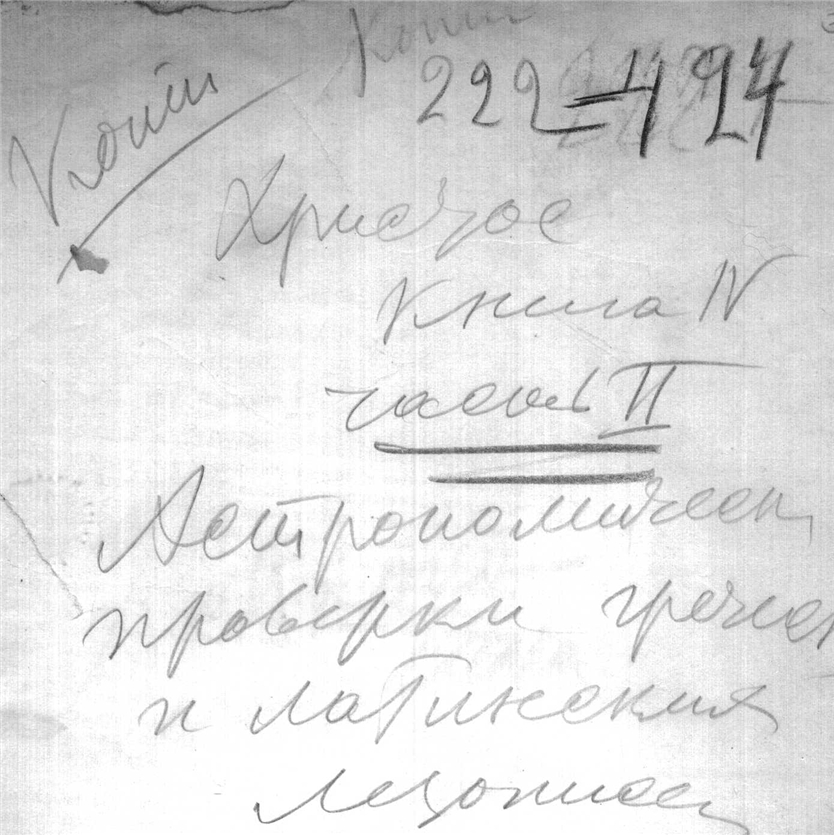 Копии
222-494
Христос
Книга IV
часть II
Астрономическ
проверки гречес
и латинских
летописе